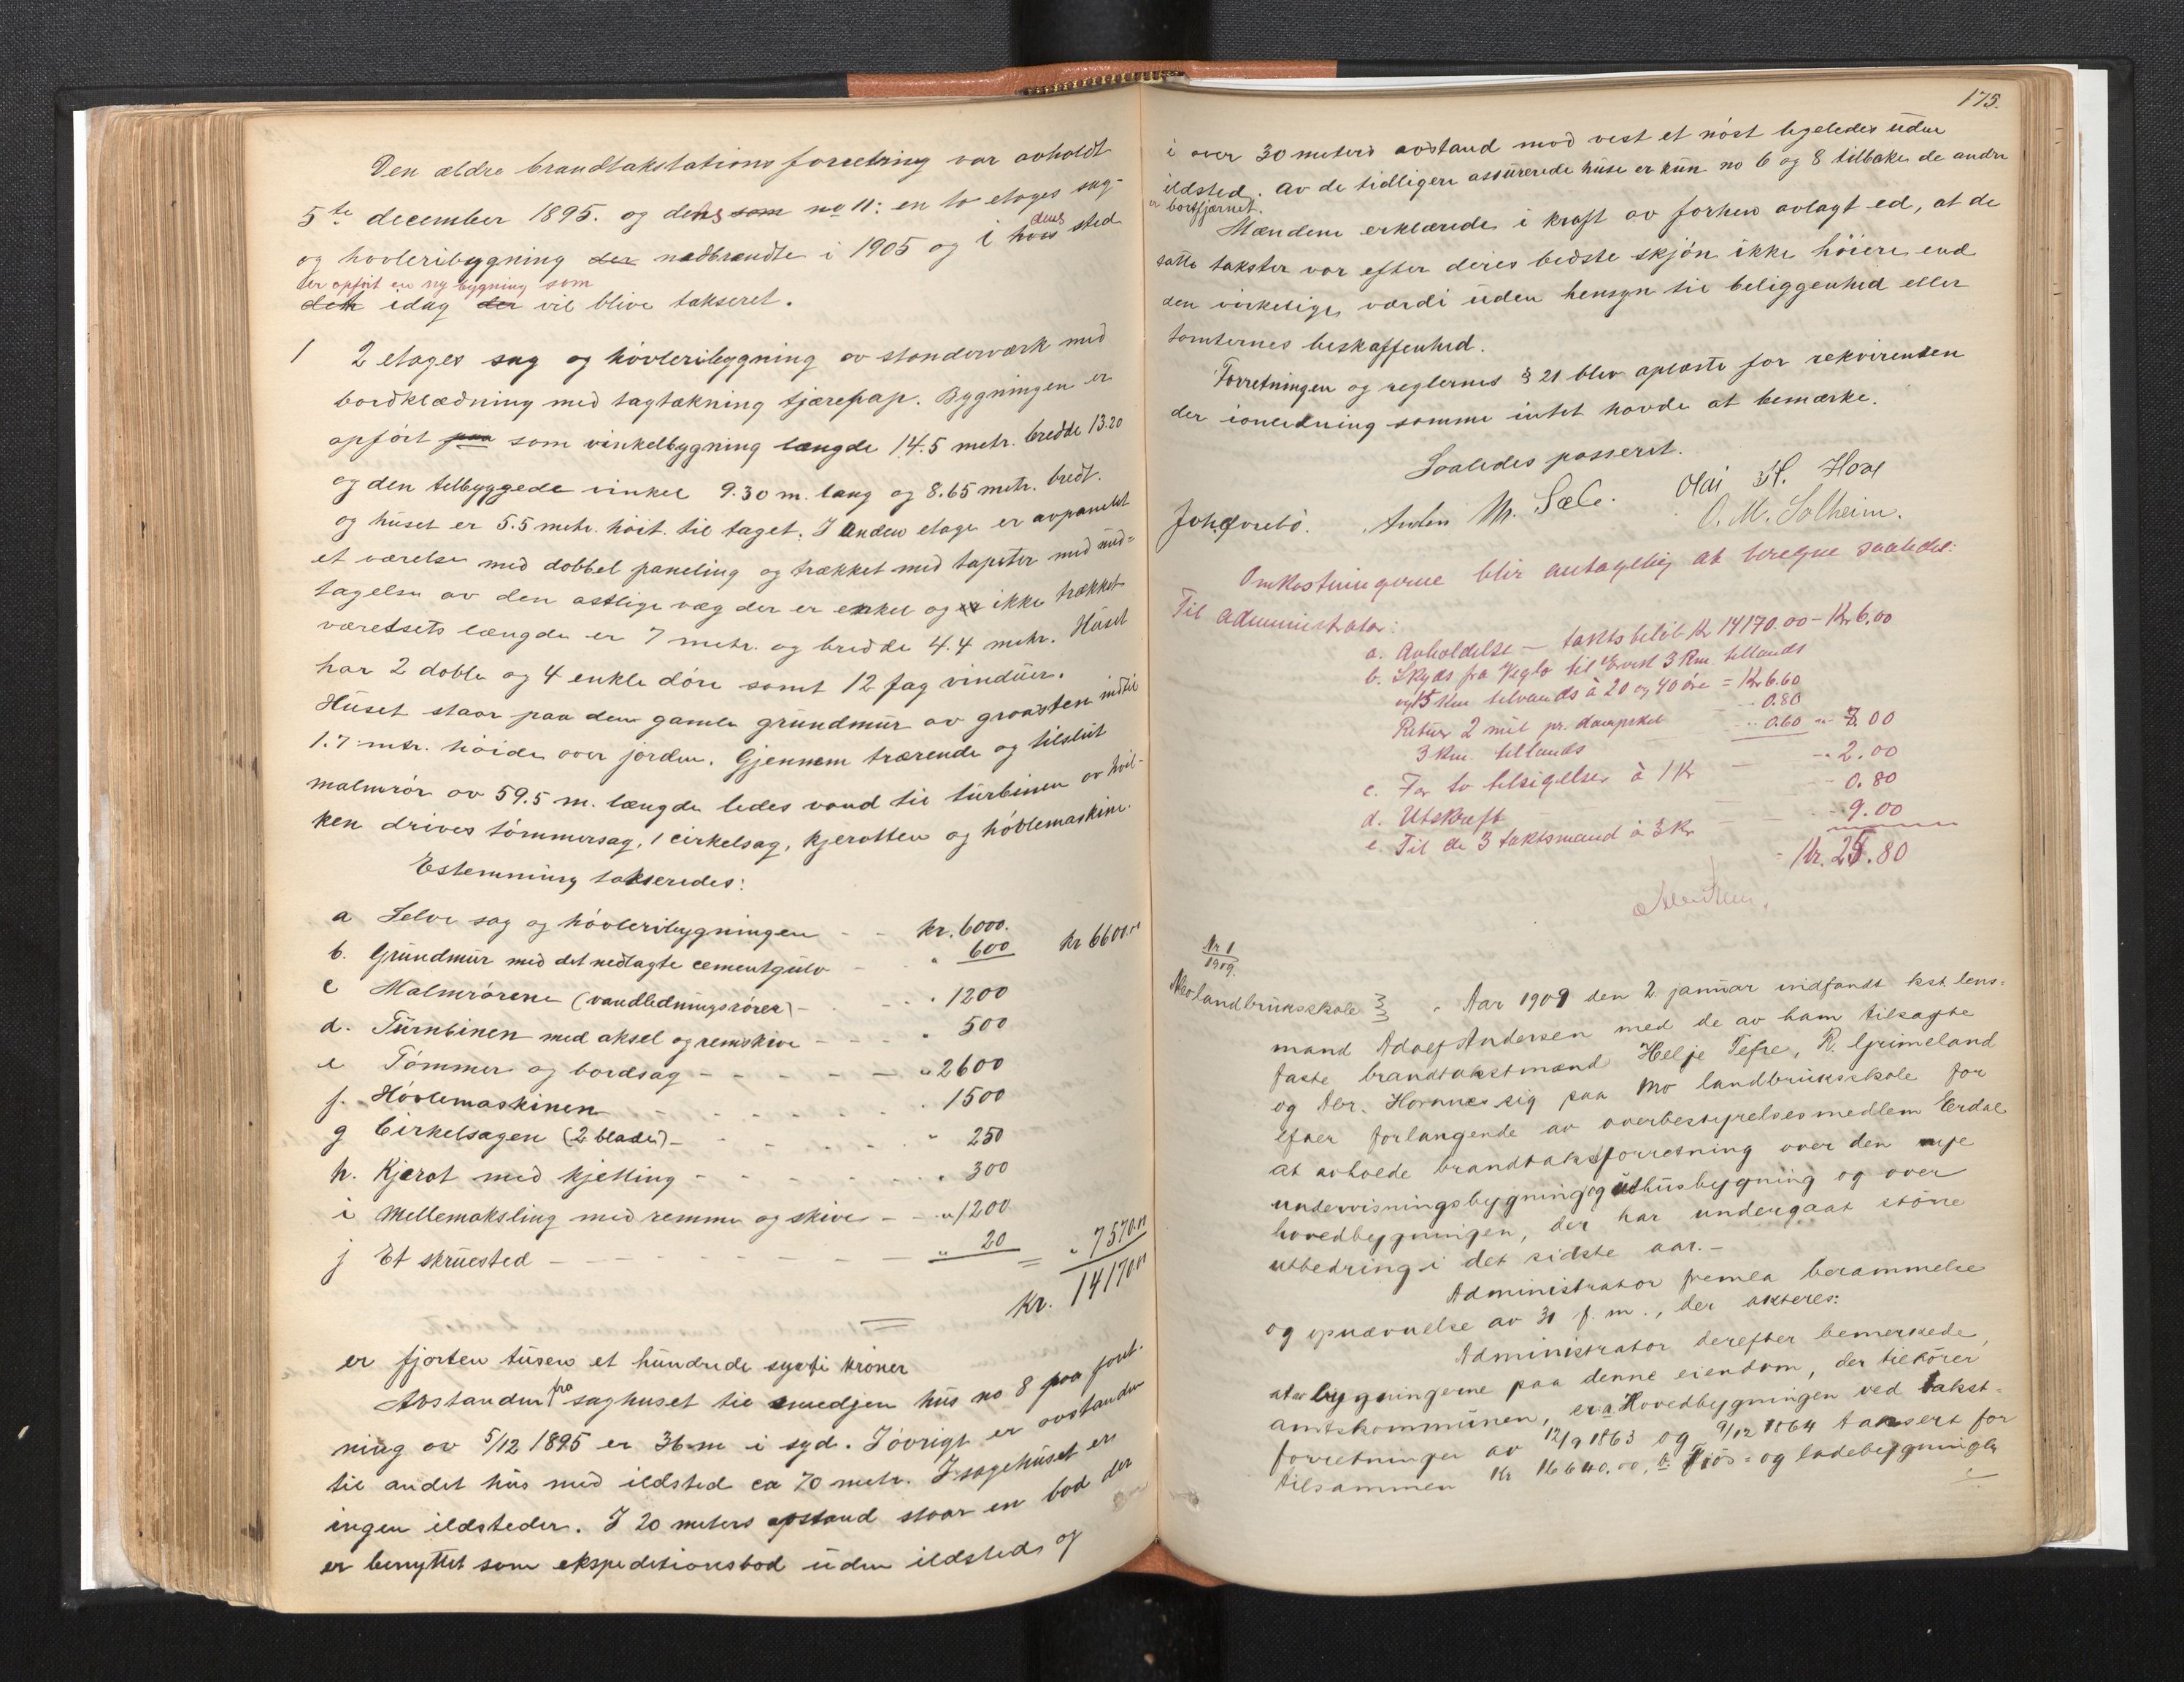 Den ældre brandtakstationsforretning var avholdt
5te december 1895. og dens som no 11: en to etages sag-
og hovleribygning der nedbrændte i 1905 og i hvis dens sted
er opført en ny bygning som
den idag der vil blive takseret.
1 2 etages sag og hóvleribygning av stenderværk med
bordklædning med tagtækning tjærepap. Bygningen er
opfört paa som vinkelbygning længde 14.5 metr. bredde 13.20
og den tilbyggede vinkel 9.30 m. lang og 8.65 metr. bredt.
og huset er 5.5 metr. höit. til taget. I anden etage er avpanelet
et værelse med dobbel paneling og trækket med tapeter med und=
tagelse av den østlige væg der er enkel og er ikke trækket
værelsets længde er 7 metr. og bredde 4.4 metr. Huset
har 2 doble og 4 enkle döre samt 12 fag vinduer.
Huset staar paa den gamle grundmur av graasten indtil
1.7 mtr. höide over jorden. Gjennem trærende og tilslut
malmrör av 59.5 m. længde ledes vand til turbinen av hvil-
ken drives tömmersag, 1 cirkelsag, kjerratten og hövlemaskine.
Estemning takseredes:
a Selve sag og hövleribygningen - - kr. 6000.
b. Grundmur med det nedlagte cementgulv - " 600 kr 6600.00
c Malmrörene (vandledningsrörer) - - - " 1200
d. Turnbinen med aksel og remskive - - - " 500
e Tömmer og bordsag - - - - - " 2600
f. Hövlemaskinen " 1500
g Cirkelsagen (2 blade) - - - - " 250
h. Kjerat med kjetting - - - - " 300
i Mellemaksling med remme og skive - - " 1200
j Et skruested - - - - - " 20 = " 7570.00
Kr. 14170.00
er fjorten tusen et hundrede sytti kroner
Avstanden fra saghuset til smedjen hus no 8 paa forret-
ning av 5/12 1895 er 36 m i syd. I övrigt er avstanden
til andet hus med ildsted ca 70 metr. I sagehuset er
ingen ildsteder. I 20 meters avstand staar en bod der
er benyttet som ekspeditionsbod uden ildsted og
175.
i over 30 meters avstand mod vest et nöst ligeledes uden
ildsted. Av de tidligere assurerede huse er kun no 6 og 8 tilbake de andre
er bortfjernet.
Mændene erklærede i kraft av forhen avlagt ed, at de
satte takster var efter deres bedste skjön ikke höiere end
den virkelige værdi uden hensyn til beliggenhed eller
tomternes beskaffenhed.
Forretningen og reglernes § 21 blev oplæste for rekvirenten
der i anledning samme intet havde at bemærke.
Saaledes passeret.
Joh. Anders M. Sæle. Olai H. Hove
O. M. Solheim.
Omkostningerne blir antagelig at beregne saaledes:
Til administrator:
a. Avholdelse - takstbelöb Kr 14170.00 - Kr 6.00
b. Skyds fra til 3 Km. tillands
og 15 Km tilvands à 20 og 40 öre = Kr 6.60
Retur 2 mil pr. dampskib - " 0.80
3 Km. tillands " 0.60 " 8.00
c. For to tilsigelser à 1 Kr - " 2.00
d. Utskrift - " 0.80
e. Til de 3 takstmænd à 3 Kr - " 9.00
= Kr. 25.80
Nr 1
1909.
Mo landbruksskole } Aar 1909 den 2. januar indfandt kst. lens=
mand Adolf Andersen med de av ham tilsagte
faste brandtakstmænd Helje Tefre, R. Grimeland
og Abr. Hornnes sig paa Mo landbruksskole for
efter forlangende av overbestyrelsesmedlem Erdal
at avholde brandtakstforretning over den nye
undervisningsbygning og udhusbygning og over
hovedbygningen, der har undergaat större
utbedring i det sidste aar. -
Administrator fremla berammelse
og opnævnelse av 31 f. m., der akteres:
Administrator derefter bemerkede,
at av bygningerne paa denne eiendom, der tilhörer
amtskommunen, er: a Hovedbygningen ved takst=
forretninger av 12/9 1863 og 9/12 1864 taksert for
tilsammen Kr 16640.00, b: Fjös= og ladebygningen